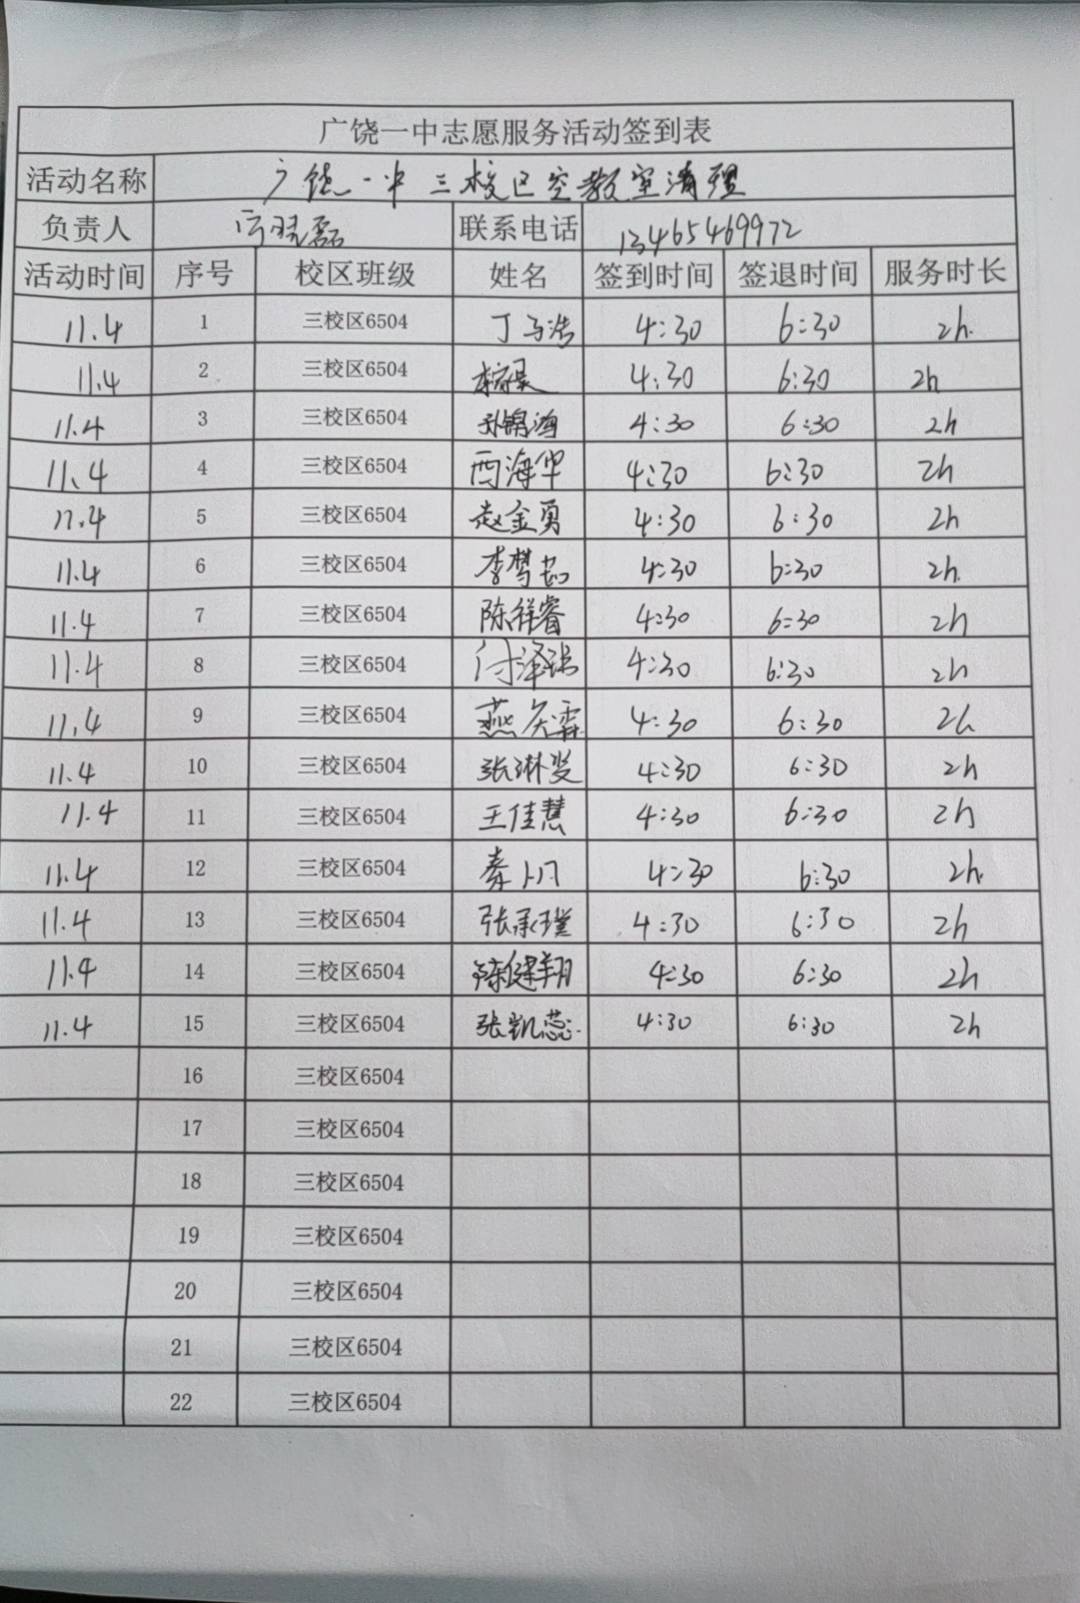 广饶一中志愿服务活动签到表
活动名称 广饶一中三校区空教室清理
负责人 联系电话 13465469972
活动时间 序号 校区班级 姓名 签到时间 签退时间 服务时长
11.4 1 三校区6504 丁子浩 4:30 6:30 2h.
11.4 2 三校区6504 4:30 6:30 2h
11.4 3 三校区6504 孙锦鸿 4:30 6:30 2h
11.4 4 三校区6504 西海华 4:30 6:30 2h
11.4 5 三校区6504 赵金勇 4:30 6:30 2h
11.4 6 三校区6504 李梦茹 4:30 6:30 2h.
11.4 7 三校区6504 陈祥睿 4:30 6:30 2h
11.4 8 三校区6504 泽瑞 4:30 6:30 2h
11.4 9 三校区6504 燕 霖 4:30 6:30 2h
11.4 10 三校区6504 张琳斐 4:30 6:30 2h
11.4 11 三校区6504 王佳慧 4:30 6:30 2h
11.4 12 三校区6504 秦 4:30 6:30 2h.
11.4 13 三校区6504 张承璞 4:30 6:30 2h
11.4 14 三校区6504 健翔 4:30 6:30 2h
11.4 15 三校区6504 张凯蕊 4:30 6:30 2h
16 三校区6504
17 三校区6504
18 三校区6504
19 三校区6504
20 三校区6504
21 三校区6504
22 三校区6504